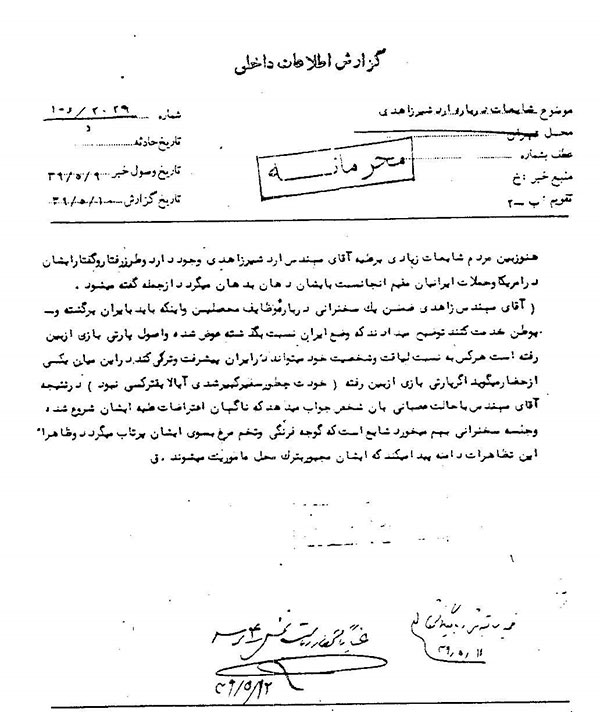 گزارش اطلاعات داخلی
موضوع شایعات درباره اردشیرزاهدی
محل تهران
عطف بشماره
منبع خبر : خ
تقویم : ب ــ ۲
شماره ۲۰۲۹ / ۱۰۵
د
تاریخ حادثه
تاریخ وصول خبر ۳۹/۵/۹
تاریخ گزارش ۳۹/۵/۱۰
محرمانــــه
هنوزبین مردم شایعات زیادی برعلیه آقای مهندس اردشیرزاهدی وجود دارد وطرزرفتاروگفتارایشان
درامریکا وحملات ایرانیان مقیم انجانسبت بایشان دهان بدهان میگردد ازجمله گفته میشود .
( آقای مهندس زاهدی ضمن یك سخنرانی درباره وظایف محصلین واینکه باید بایران برگشته و ــ
بوطن خدمت کنند توضیح میدادند که وضع ایران نسبت بگذشته عوض شده واصول پارتی بازی ازبین
رفته است هرکس به نسبت لیاقت وشخصیت خود میتواند در ایران پیشرفت وترقی کند . دراین میان یکی
ازحضارمیگوید اگرپارتی بازی ازبین رفته ( خودت چطورسفیرکبیرشدی آیالایقترکسی نبود ) درنتیجه
آقای مهندس باحالت عصبانی بان شخص جواب میدهد که ناگهان اعتراضات علیه ایشان شروع شده
وجلسه سخنرانی بهم میخورد شایع است که گوجه فرنگی وتخم مرغ بسوی ایشان پرتاب میگردد وظاهراً
این تظاهرات دامنه پیدا میکند که ایشان مجبوربترك محل ماموریت میشوند . ق
۳۹/۵/۱۱
۳۹/۵/۱۲